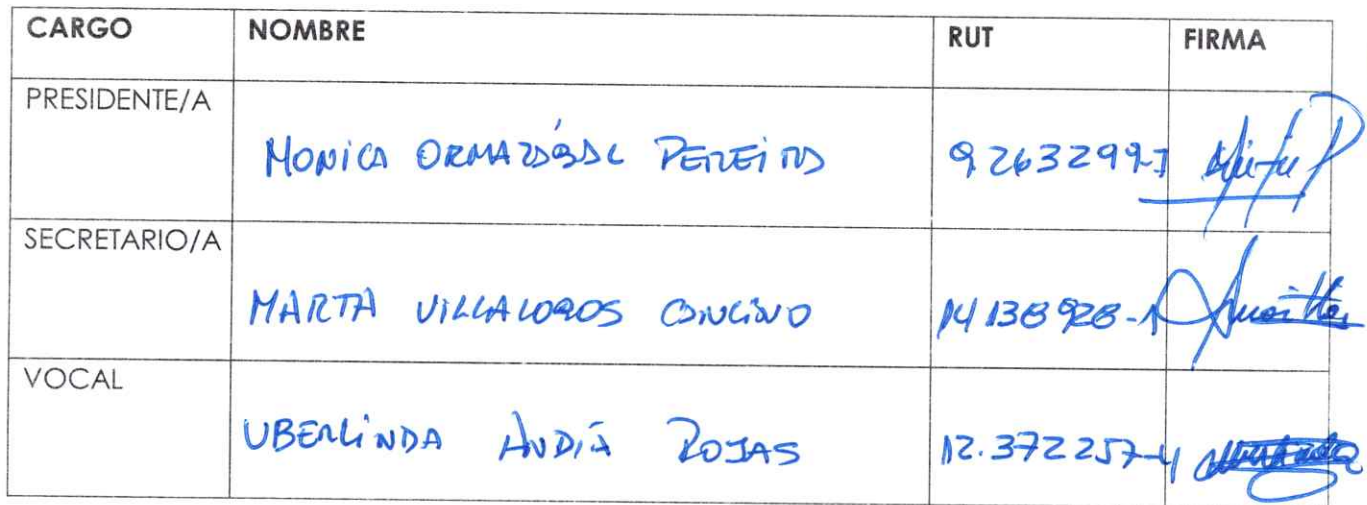 CARGO NOMBRE RUT FIRMA
PRESIDENTE/A
MONICA ORMAZÁBAL PEREIRA 9263299-7
SECRETARIO/A
MARTA VILLALOBOS 14138928-1
VOCAL
UBERLINDA ROJAS 12.372257-4